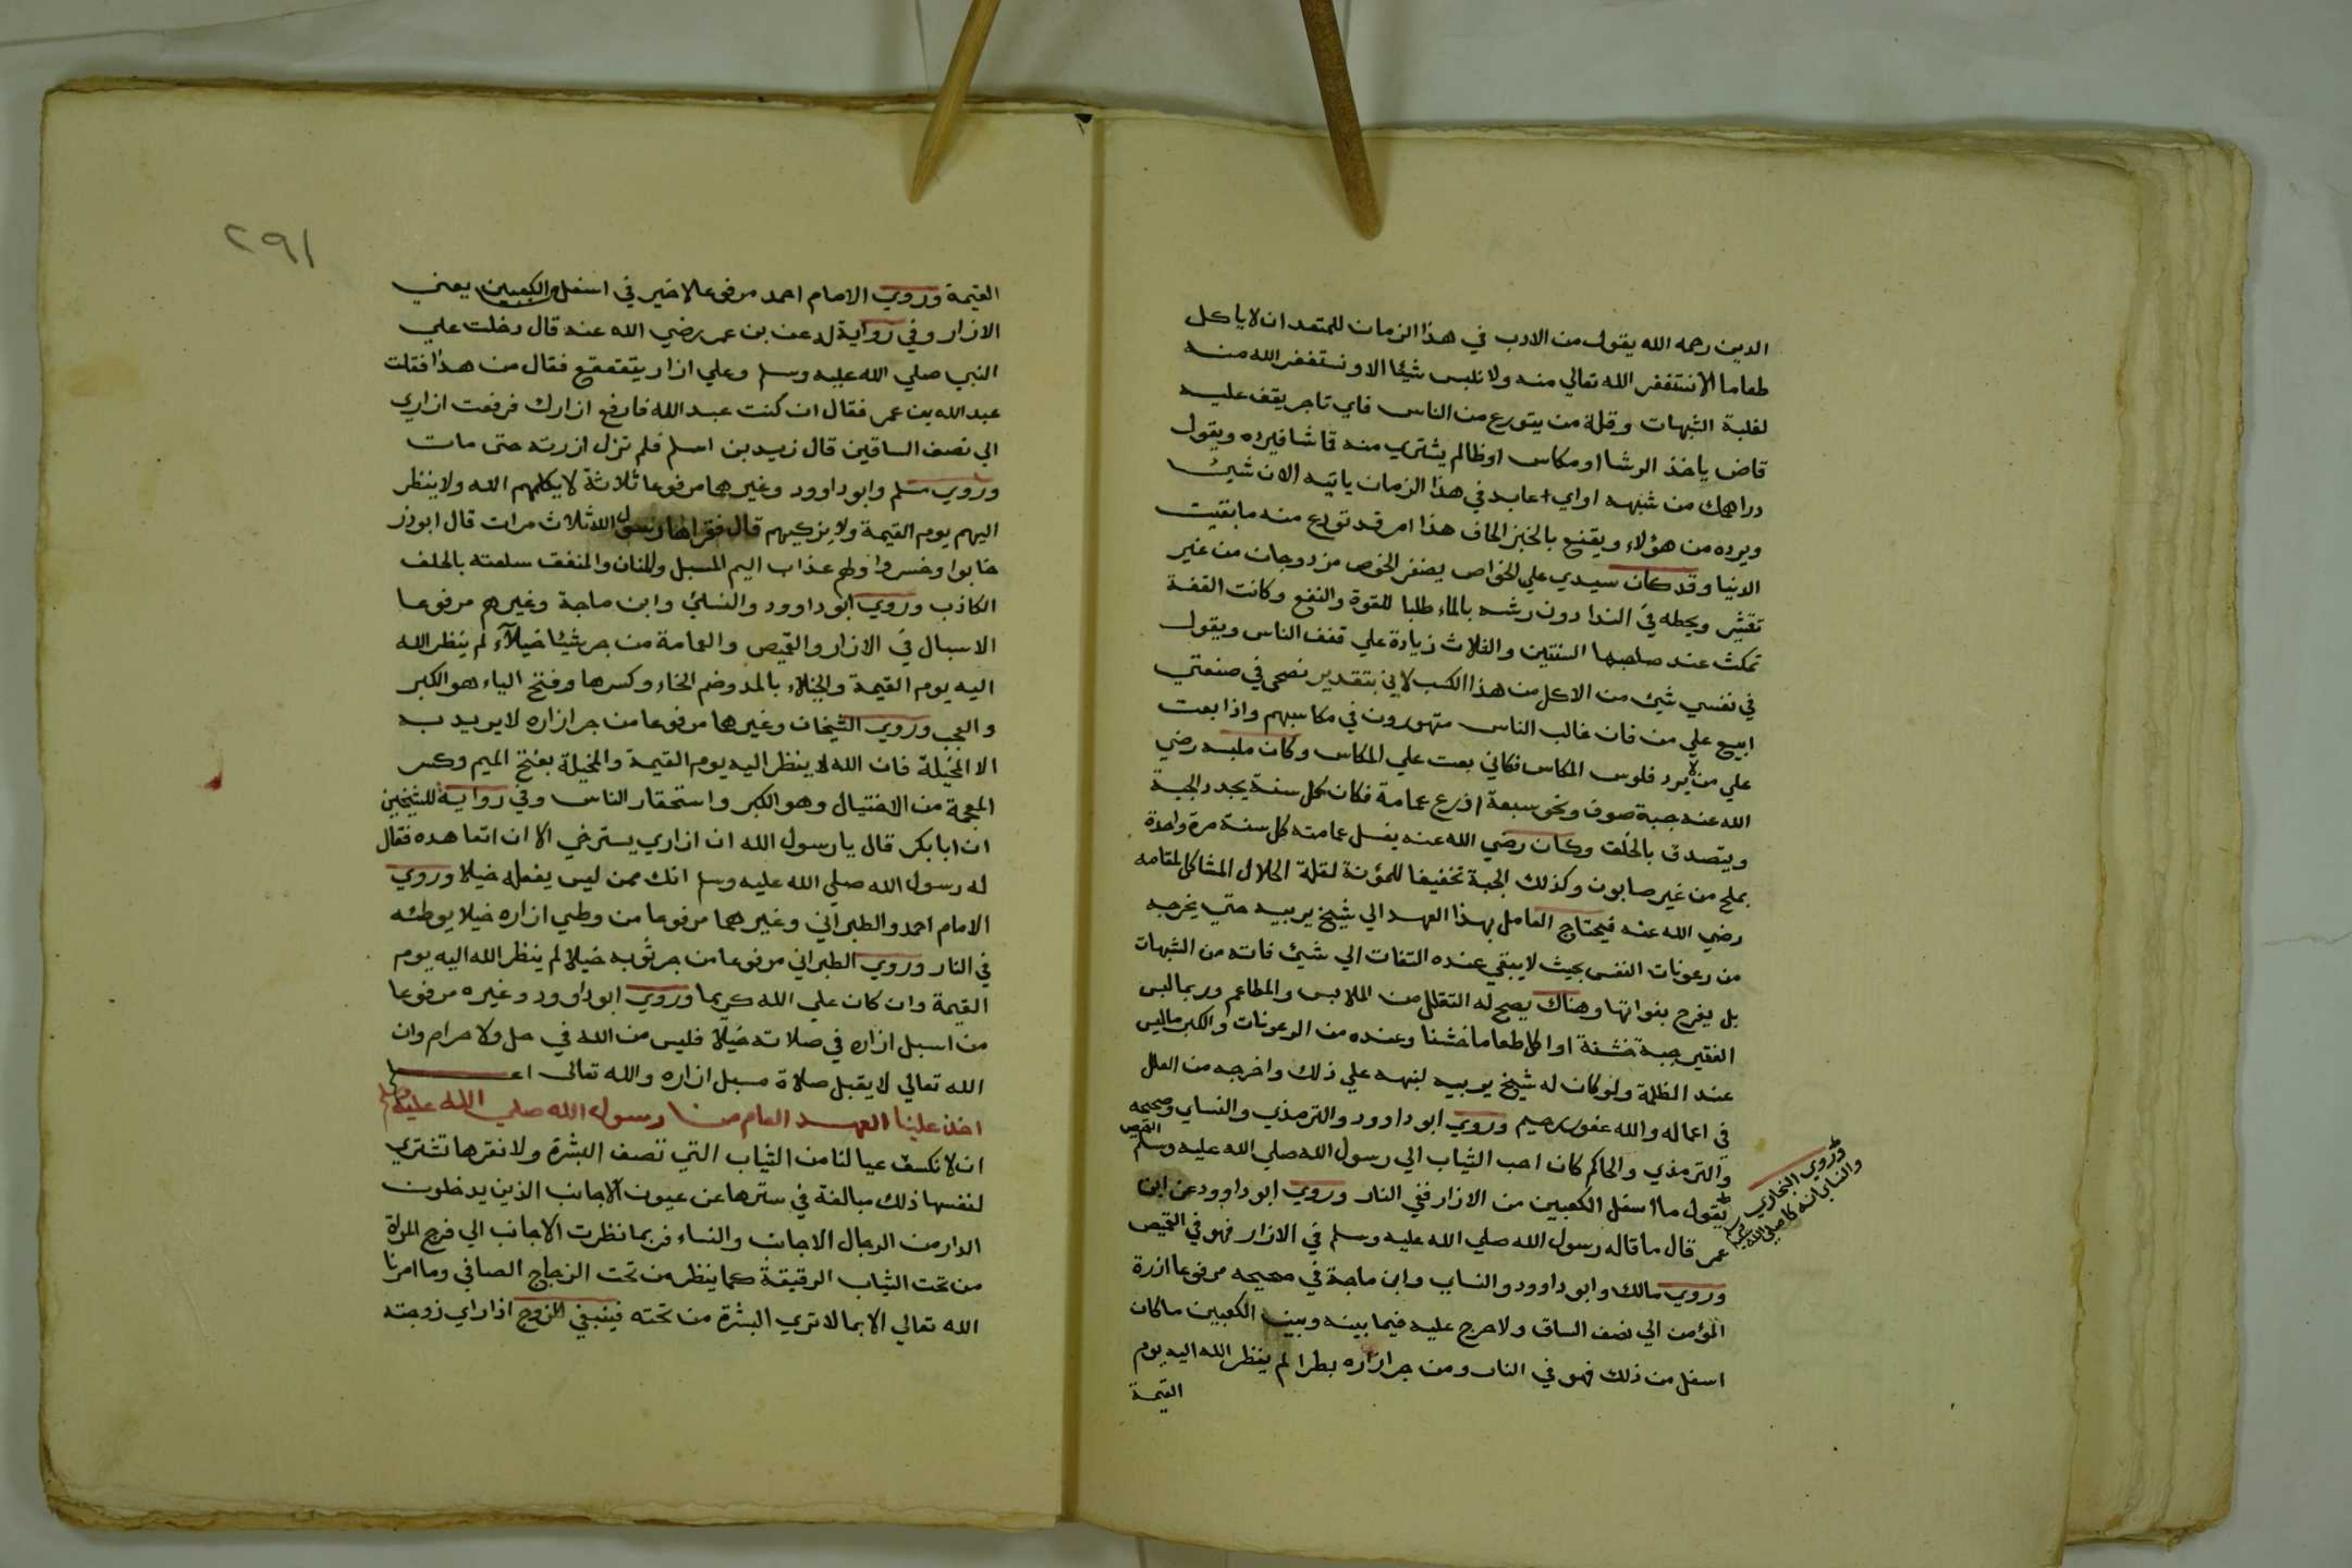 الدين رحمه الله يقول من الادب في هذا الزمان للمتعبد ان لا ياكل
طعاما الا نستغفر الله تعالي منه ولا نلبس شيئا الا ونستغفر الله منه
لغلبة الشبهات وقلة من يتورع من الناس فاي تاجر يقف عليه
قاض ياخذ الرشا او مكاس او ظالم يشتري منه قماشا فيرده ويقول
دراهمك من شبهه او اي عابد في هذا الزمان ياتيه الان شيئ
ويرده من هؤلاء ويقنع بالخبز الحاف هذا امر قد تودع منه ما بقيت
الدنيا وقد كان سيدي علي الخواص يضفر الخوص مزدوجات من غير
تقشير ويحطه في الندا دون رشه بالماء طلبا للقوة والنفع وكانت القفة
تمكث عند صاحبها السنتين والثلاث زيادة علي قفف الناس ويقول
في نفسي شيئ من الاكل من هذا الكسب لاني بتقدير نصحي في صنعتي
ابيع علي من فان غالب الناس متهورون في مكاسبهم واذا بعت
علي من لا يرد فلوس المكاس فكاني بعت علي المكاس وكان ملبسه رضي
الله عنه جبة صوف ونحو سبعة اذرع عمامة فكان كل سنة يجدد الجبة
ويتصدق بالخلق وكان رضي الله عنه يغسل عمامته كل سنة مرة واحدة
بملح من غير صابون وكذلك الجبة تخفيفا للمؤنة لقلة الحلال المشاكل لمقامه
رضي الله عنه فيحتاج العامل بهذا العهد الي شيخ يربيه حتي يخرجه
من رعونات النفس بحيث لا يبقي عنده التفات الي شيئ فاته من الشبهات
بل يفرح بفواتها وهناك يصح له التقلل من الملابس والمطاعم وربما لبس
الفقير جبة خشنة او اكل طعاما خشنا وعنده من الرعونات والكبر ما ليس
عند الظلمة ولو كان له شيخ يربيه لنبهه علي ذلك واخرجه من العلل
في اعماله والله غفور رحيم وروي ابو داوود والترمذي والنساي وصححه
والترمذي والحاكم كان احب الثياب الي رسول الله صلي الله عليه وسلم القميص
وروي البخاري
والنساي انه كان صلي الله عليه وسلم
يقول ما اسفل الكعبين من الازار ففي النار وروي ابو داوود عن ابن
عمر قال ما قاله رسول الله صلي الله عليه وسلم في الازار فهو في القميص
وروي مالك وابو داوود والنساي وابن ماجة في صحيحه مرفوعا ازرة
المؤمن الي نصف الساق ولا حرج عليه فيما بينه وبين الكعبين ما كان
اسفل من ذلك فهو في النار ومن جر ازاره بطرا لم ينظر الله اليه يوم
القيمة
٢٩١
القيمة وروي الامام احمد مرفوعا لا خير في اسفل الكعبين يعني
الازار وفي رواية له عن بن عمر رضي الله عنه قال دخلت علي
النبي صلي الله عليه وسلم وعلي ازار يتقعقع فقال من هذا فقلت
عبد الله بن عمر فقال ان كنت عبد الله فارفع ازارك فرفعت ازاري
الي نصف الساقين قال زيد بن اسلم فلم تزل ازرته حتي مات
وروي مسلم وابو داوود وغيرهما مرفوعا ثلاثة لا يكلمهم الله ولا ينظر
اليهم يوم القيمة ولا يزكيهم قال فقراها رسول الله ثلاث مرات قال ابو ذر
خابوا وخسروا ولهم عذاب اليم المسبل والمنان والمنفق سلعته بالحلف
الكاذب وروي ابو داوود والنسائي وابن ماجة وغيرهم مرفوعا
الاسبال في الازار والقميص والعمامة من جر شيئا خيلاء لم ينظر الله
اليه يوم القيمة والخيلاء بالمد وضم الخاء وكسرها وفتح الياء هو الكبر
والعجب وروي الشيخان وغيرهما مرفوعا من جر ازاره لا يريد به
الا المخيلة فان الله لا ينظر اليه يوم القيمة والمخيلة بفتح الميم وكسر
المعجمة من الاختيال وهو الكبر واستحقار الناس وفي رواية للشيخين
ان ابا بكر قال يا رسول الله ان ازاري يسترخي الا ان اتعاهده فقال
له رسول الله صلي الله عليه وسلم انك ممن ليس يفعله خيلا وروي
الامام احمد والطبراني وغيرهما مرفوعا من وطي ازاره خيلا يوطئه
في النار وروي الطبراني مرفوعا من جر ثوبه خيلا لم ينظر الله اليه يوم
القيمة وان كان علي الله كريما وروي ابو داوود وغيره مرفوعا
من اسبل ازاره في صلاته خيلا فليس من الله في حل ولا حرام وان
الله تعالي لا يقبل صلاة مسبل ازاره والله تعالي اعلم
اخذ علينا العهد العام من رسول الله صلي الله عليه وسلم
ان لا نكسف عيالنا من الثياب التي تصف البشرة ولا نقرها تشتري
لنفسها ذلك مبالغة في سترها عن عيون الاجانب الذين يدخلون
الدار من الرجال الاجانب والنساء فربما نظرت الاجانب الي فرج المراة
من تحت الثياب الرقيقة كما ينظر من تحت الزجاج الصافي وما امرنا
الله تعالي الا بما لا تري البشرة من تحته فينبغي للزوج اذا راي زوجته